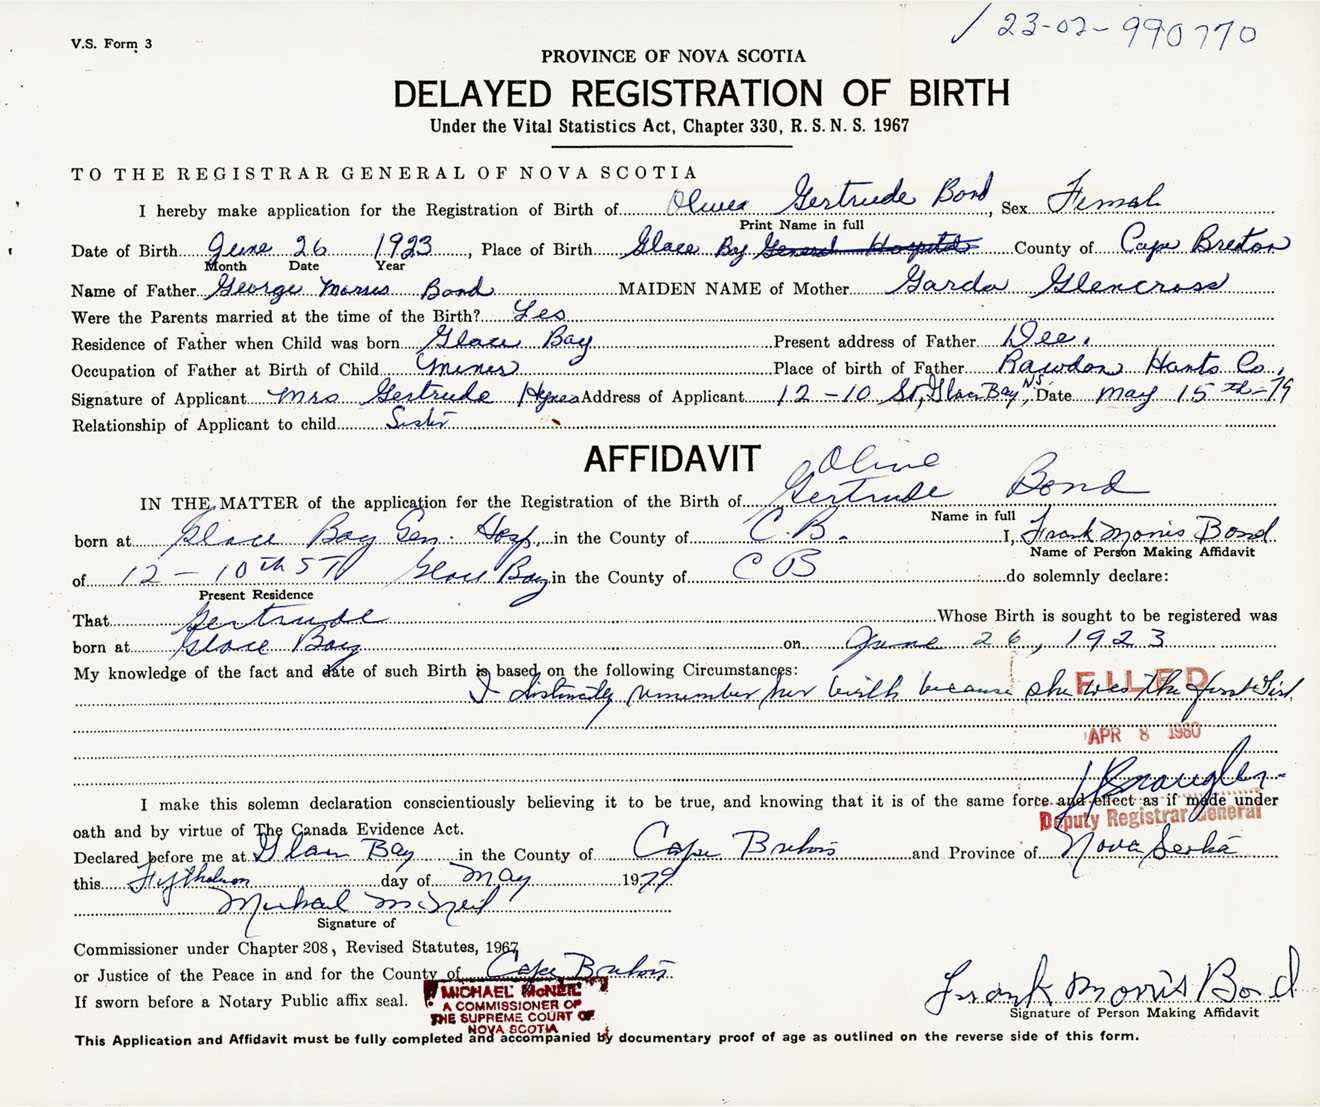 V.S. Form 3
/ 23-02-990770
PROVINCE OF NOVA SCOTIA
DELAYED REGISTRATION OF BIRTH
Under the Vital Statistics Act, Chapter 330, R. S. N. S. 1967
TO THE REGISTRAR GENERAL OF NOVA SCOTIA
I hereby make application for the Registration of Birth of Gertrude Bond, Sex Female
Print Name in full
Date of Birth June 26 1923, Place of Birth Glace Bay General Hospital County of Cape Breton
Month Date Year
Name of Father George Morris Bond MAIDEN NAME of Mother Garda Glencross
Were the Parents married at the time of the Birth? Yes
Residence of Father when Child was born Glace Bay Present address of Father Dec.
Occupation of Father at Birth of Child Miner Place of birth of Father Rawdon Hants Co.
Signature of Applicant Mrs Gertrude Hynes Address of Applicant 12-10 St, Glace Bay, N.S. Date May 15th-79
Relationship of Applicant to child Sister
AFFIDAVIT
Olive
IN THE MATTER of the application for the Registration of the Birth of Gertrude Bond
Name in full
born at Glace Bay Gen. Hosp. in the County of C.B. I, Frank Morris Bond
Name of Person Making Affidavit
of 12-10th ST Glace Bay in the County of CB do solemnly declare:
Present Residence
That Gertrude Whose Birth is sought to be registered was
born at Glace Bay on June 26, 1923
My knowledge of the fact and date of such Birth is based on the following Circumstances:
I distinctly remember her birth because she was the first Girl
FILED
APR 8 1980
I make this solemn declaration conscientiously believing it to be true, and knowing that it is of the same force and effect as if made under
Deputy Registrar General
oath and by virtue of The Canada Evidence Act.
Declared before me at Glace Bay in the County of Cape Breton and Province of Nova Scotia
this day of May 1979
Michael McNeil
Signature of
Commissioner under Chapter 208, Revised Statutes, 1967
or Justice of the Peace in and for the County of Cape Breton
If sworn before a Notary Public affix seal.
MICHAEL McNEIL
A COMMISSIONER OF
THE SUPREME COURT OF
NOVA SCOTIA
Frank Morris Bond
Signature of Person Making Affidavit
This Application and Affidavit must be fully completed and accompanied by documentary proof of age as outlined on the reverse side of this form.